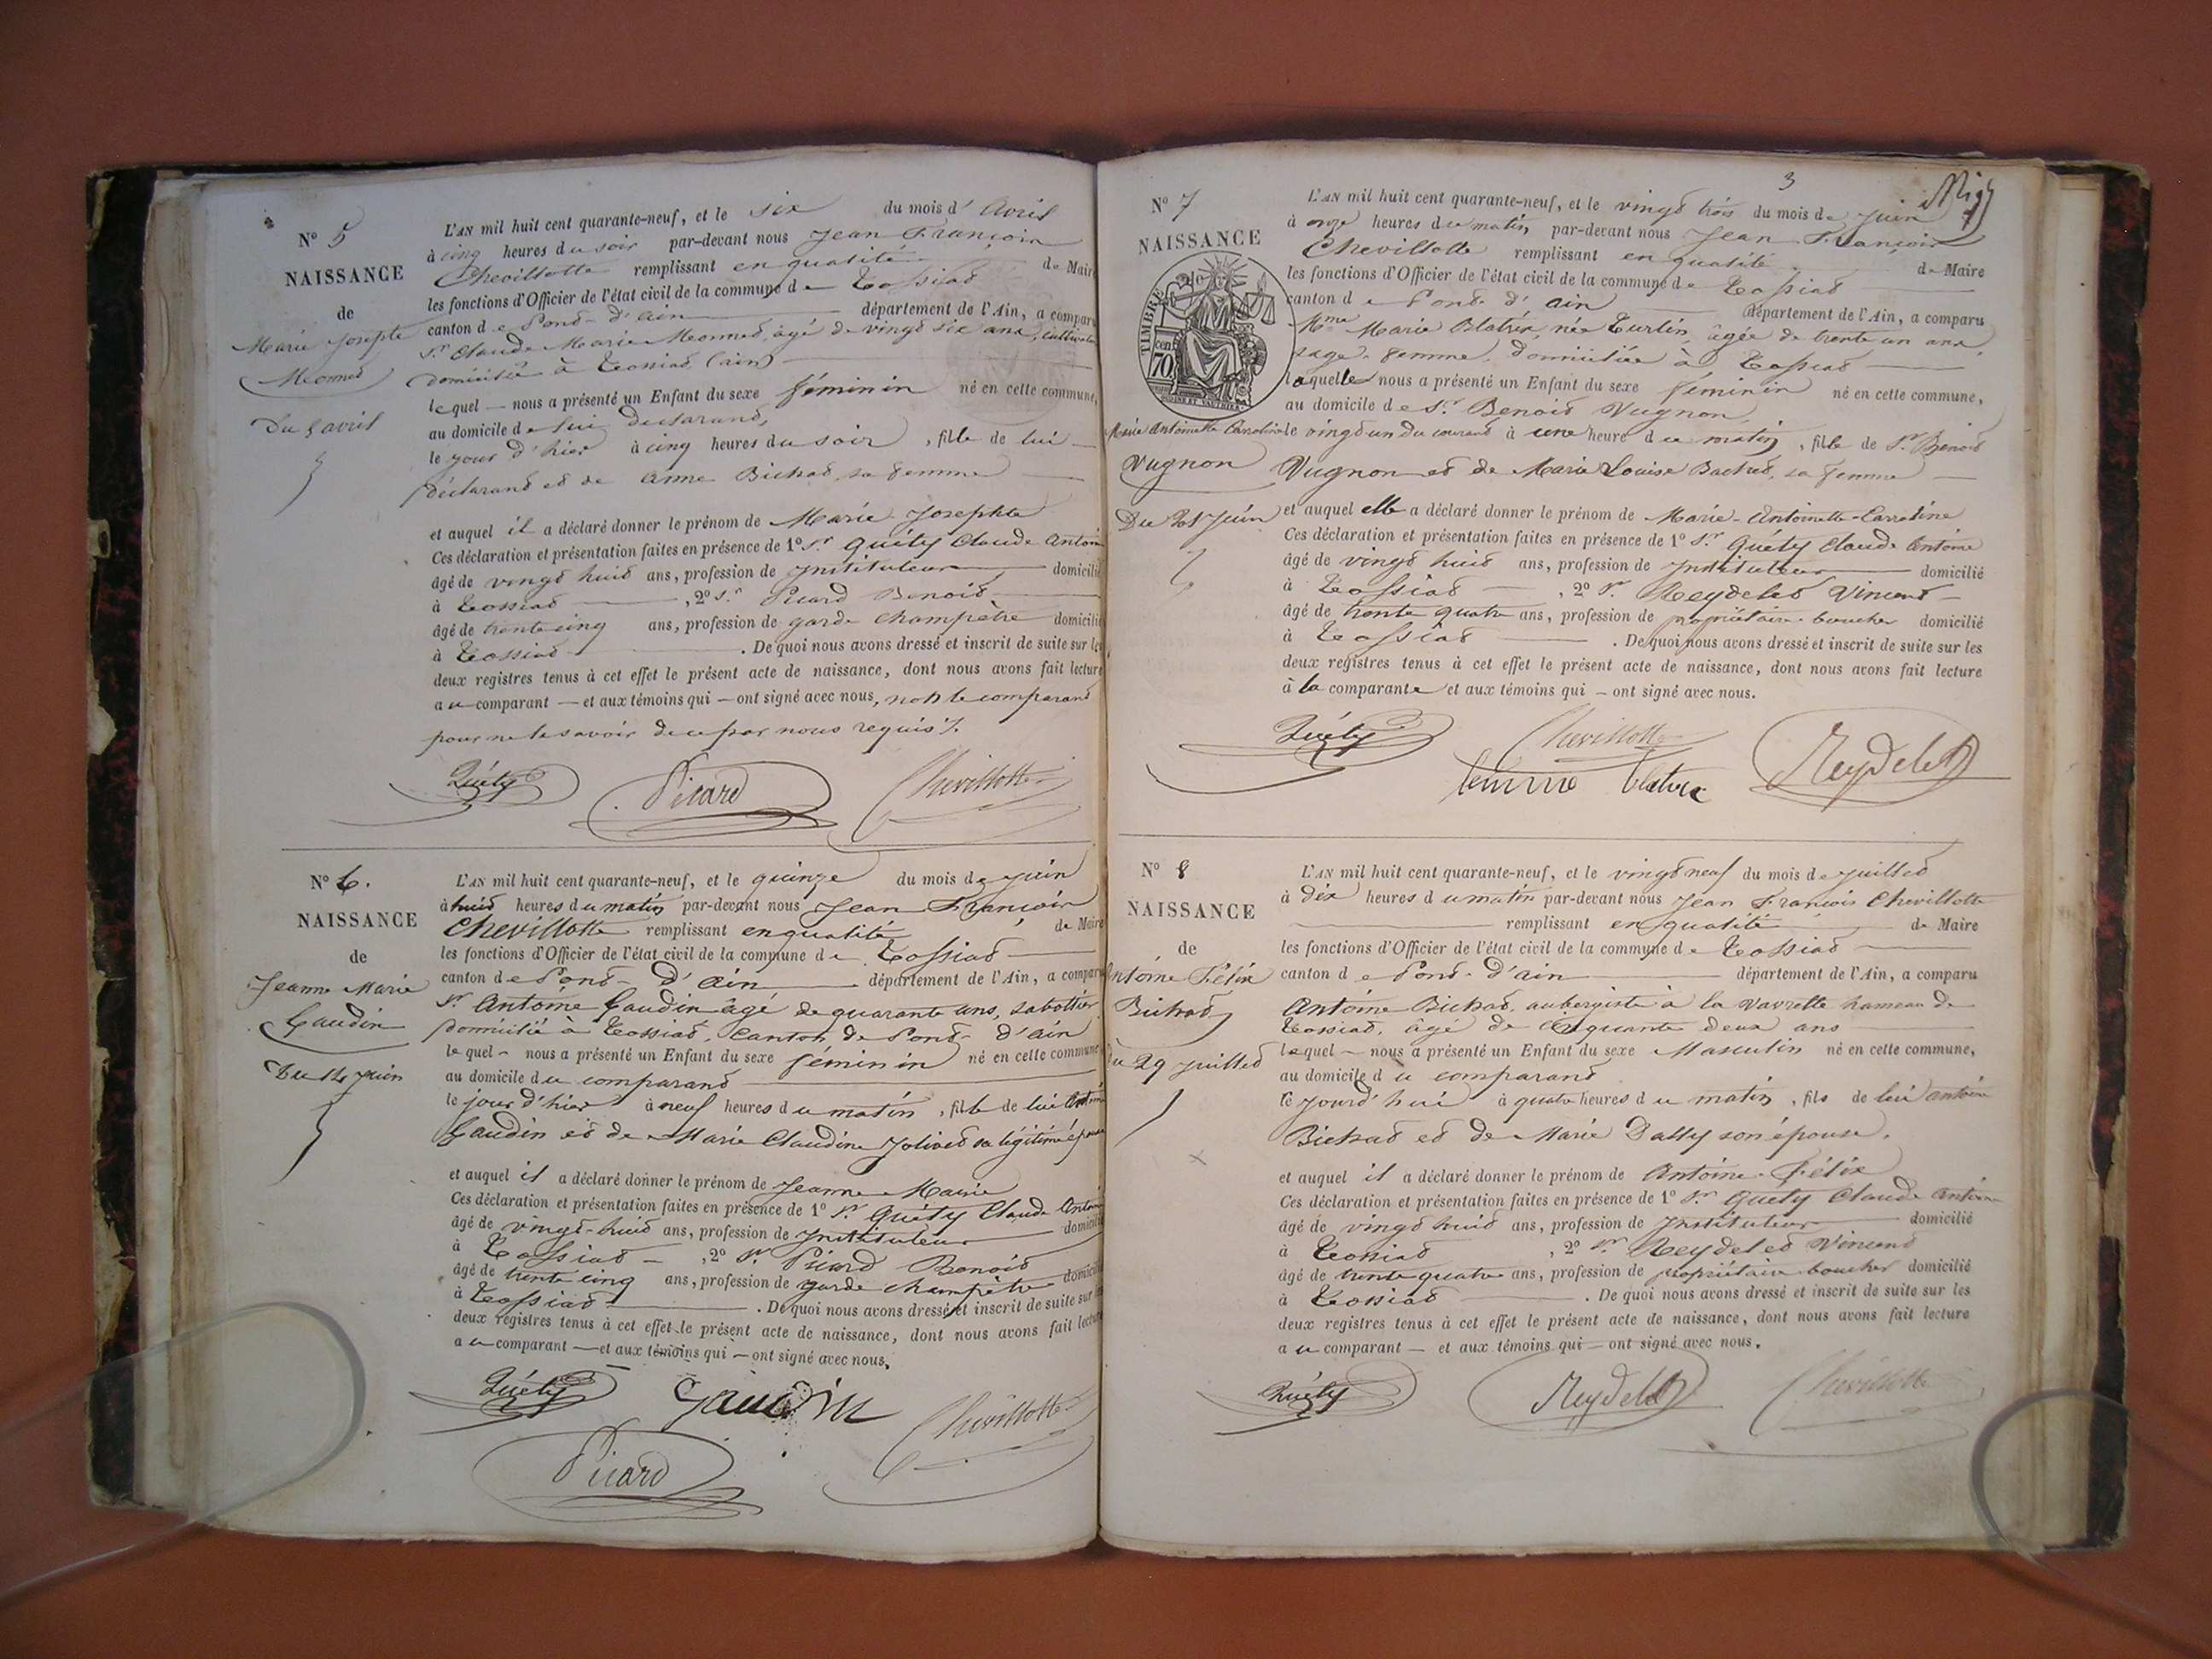 Nº 5
NAISSANCE
de
Marie Josephte
Monnet
Du 5 avril
L'AN mil huit cent quarante-neuf, et le six du mois d' Avril
à cinq heures du soir par-devant nous Jean François
Chevillotte remplissant en qualité de Maire
les fonctions d'Officier de l'état civil de la commune de Tossiat
canton de Pont-d'ain département de l'Ain, a comparu
Sr Claude Marie Monnet, âgé de vingt six ans, cultivateur
domicilié à Tossiat (ain)
lequel — nous a présenté un Enfant du sexe féminin né en cette commune,
au domicile de lui declarant,
le jour d'hier à cinq heures du soir, fille de lui
déclarant et de Anne Bichat, sa femme
et auquel il a déclaré donner le prénom de Marie Josephte
Ces déclaration et présentation faites en présence de 1º Sr Quéty Claude Antoine
âgé de vingt huit ans, profession de Instituteur domicilié
à Tossiat, 2º Sr Picard Benoit
âgé de trente cinq ans, profession de garde champêtre domicilié
à Tossiat. De quoi nous avons dressé et inscrit de suite sur les
deux registres tenus à cet effet le présent acte de naissance, dont nous avons fait lecture
au comparant — et aux témoins qui — ont signé avec nous, non le comparant
pour ne le savoir de ce par nous requis ./.
Quéty Picard Chevillotte
Nº 6.
NAISSANCE
de
Jeanne Marie
Gaudin
Du 14 juin
L'AN mil huit cent quarante-neuf, et le quinze du mois de juin
à huit heures du matin par-devant nous Jean François
Chevillotte remplissant en qualité de Maire
les fonctions d'Officier de l'état civil de la commune de Tossiat
canton de Pont-d'ain département de l'Ain, a comparu
Sr Antoine Gaudin âgé de quarante ans, sabottier
domicilié à Tossiat, Canton de Pont-d'ain
lequel - nous a présenté un Enfant du sexe féminin né en cette commune
au domicile du comparant
le jour d'hier à neuf heures du matin, fille de lui Antoine
Gaudin et de Marie Claudine Jolivet sa légitime épouse
et auquel il a déclaré donner le prénom de Jeanne Marie
Ces déclaration et présentation faites en présence de 1º Sr Quéty Claude Antoine
âgé de vingt-huit ans, profession de Instituteur domicilié
à Tossiat -, 2º Sr Picard Benoit
âgé de trente cinq ans, profession de garde champêtre domicilié
à Tossiat. De quoi nous avons dressé et inscrit de suite sur les
deux registres tenus à cet effet le présent acte de naissance, dont nous avons fait lecture
au comparant — et aux témoins qui — ont signé avec nous.
Quéty Gaudin Chevillotte
Picard
3
Nº 7
NAISSANCE
TIMBRE
70
Marie Antoinette Carroline
Vugnon
Du 21 Juin
L'AN mil huit cent quarante-neuf, et le vingt trois du mois de juin
à onze heures du matin par-devant nous Jean François
Chevillotte remplissant en qualité de Maire
les fonctions d'Officier de l'état civil de la commune de Tossiat
canton de Pont-d'ain département de l'Ain, a comparu
Mme Marie Blatrix, née Turlin, âgée de trente un ans,
sage-femme, domiciliée à Tossiat
laquelle nous a présenté un Enfant du sexe féminin né en cette commune,
au domicile de Sr Benoit Vugnon
le vingt un du courant à une heure du matin, fille de Sr Benoit
Vugnon et de Marie Louise Bachet, sa femme
et auquel elle a déclaré donner le prénom de Marie-Antoinette-Carroline
Ces déclaration et présentation faites en présence de 1º Sr Quéty Claude Antoine
âgé de vingt huit ans, profession de Instituteur domicilié
à Tossiat, 2º Sr Reydelet Vincent
âgé de trente quatre ans, profession de propriétaire-boucher domicilié
à Tossiat. De quoi nous avons dressé et inscrit de suite sur les
deux registres tenus à cet effet le présent acte de naissance, dont nous avons fait lecture
à la comparante et aux témoins qui — ont signé avec nous.
Quéty Chevillotte Reydelet
femme blatrix
Nº 8
NAISSANCE
de
Antoine Félix
Bichat
Du 29 juillet
L'AN mil huit cent quarante-neuf, et le vingt neuf du mois de juillet
à dix heures du matin par-devant nous Jean François Chevillotte
remplissant en qualité de Maire
les fonctions d'Officier de l'état civil de la commune de Tossiat
canton de Pont-d'ain département de l'Ain, a comparu
Antoine Bichat, aubergiste à la Vavrette hameau de
Tossiat, âgé de cinquante deux ans
lequel — nous a présenté un Enfant du sexe Masculin né en cette commune,
au domicile du comparant
le jourd'hui à quatre heures du matin, fils de lui antoine
Bichat et de Marie Dally son épouse.
et auquel il a déclaré donner le prénom de Antoine-Félix
Ces déclaration et présentation faites en présence de 1º Sr Quéty Claude Antoine
âgé de vingt huit ans, profession de Instituteur domicilié
à Tossiat, 2º Sr Reydelet Vincent
âgé de trente quatre ans, profession de propriétaire-boucher domicilié
à Tossiat. De quoi nous avons dressé et inscrit de suite sur les
deux registres tenus à cet effet le présent acte de naissance, dont nous avons fait lecture
au comparant — et aux témoins qui — ont signé avec nous.
Quéty Reydelet Chevillotte